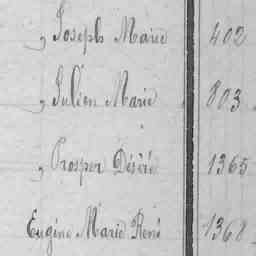 , Joseph Marie 402
, Julien Marie 803
, Prosper Désiré 1365
Eugène Marie René 1368